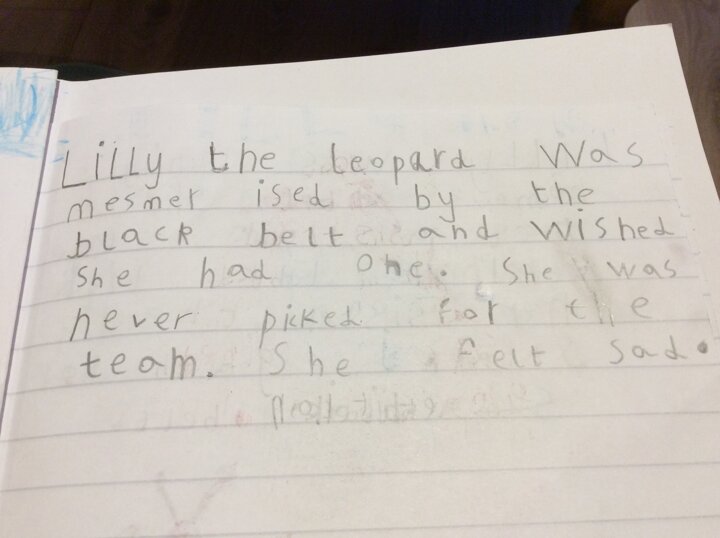 LiLLy the leopard was
mesmer ised by the
black belt and wished
She had one. She was
never picked for the
team. She felt sad.